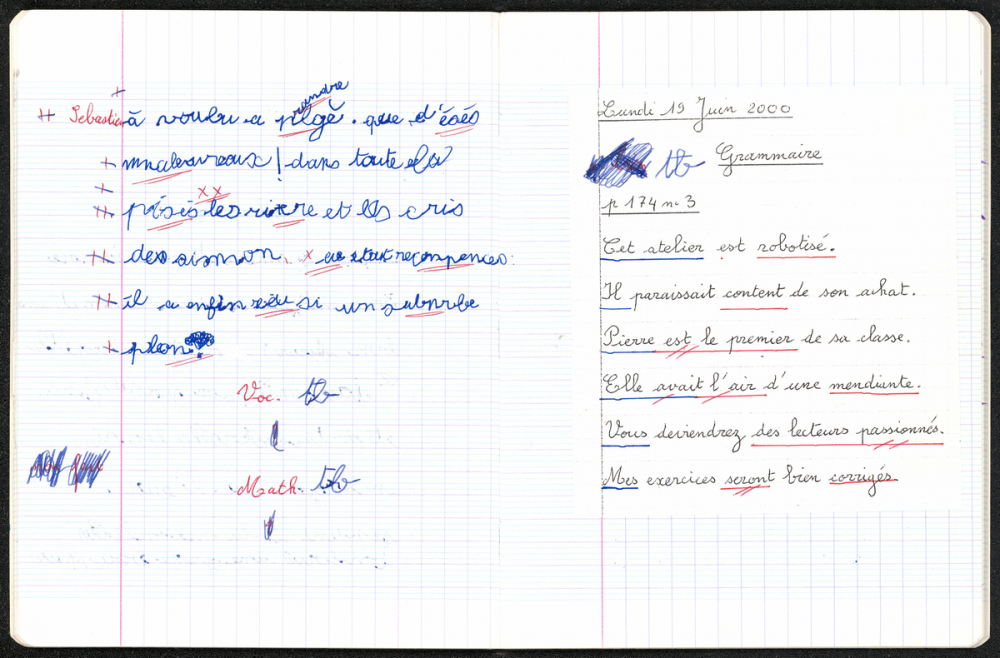 endre
Sebastien à voulu a plgè. que d'éses
mnaleureaux ! dans toute la
pôsis les rivere et les cris
des aismon. au etait recompences:
il a enfin réeu si un s abnrbe
plan.
Voc. tb
Math. tb
Lundi 19 Juin 2000
tb Grammaire
p 174 n° 3
Cet atelier est robotisé.
Il paraissait content de son achat.
Pierre est le premier de sa classe.
Elle avait l'air d'une mendiante.
Vous deviendrez des lecteurs passionnés.
Mes exercices seront bien corrigés.